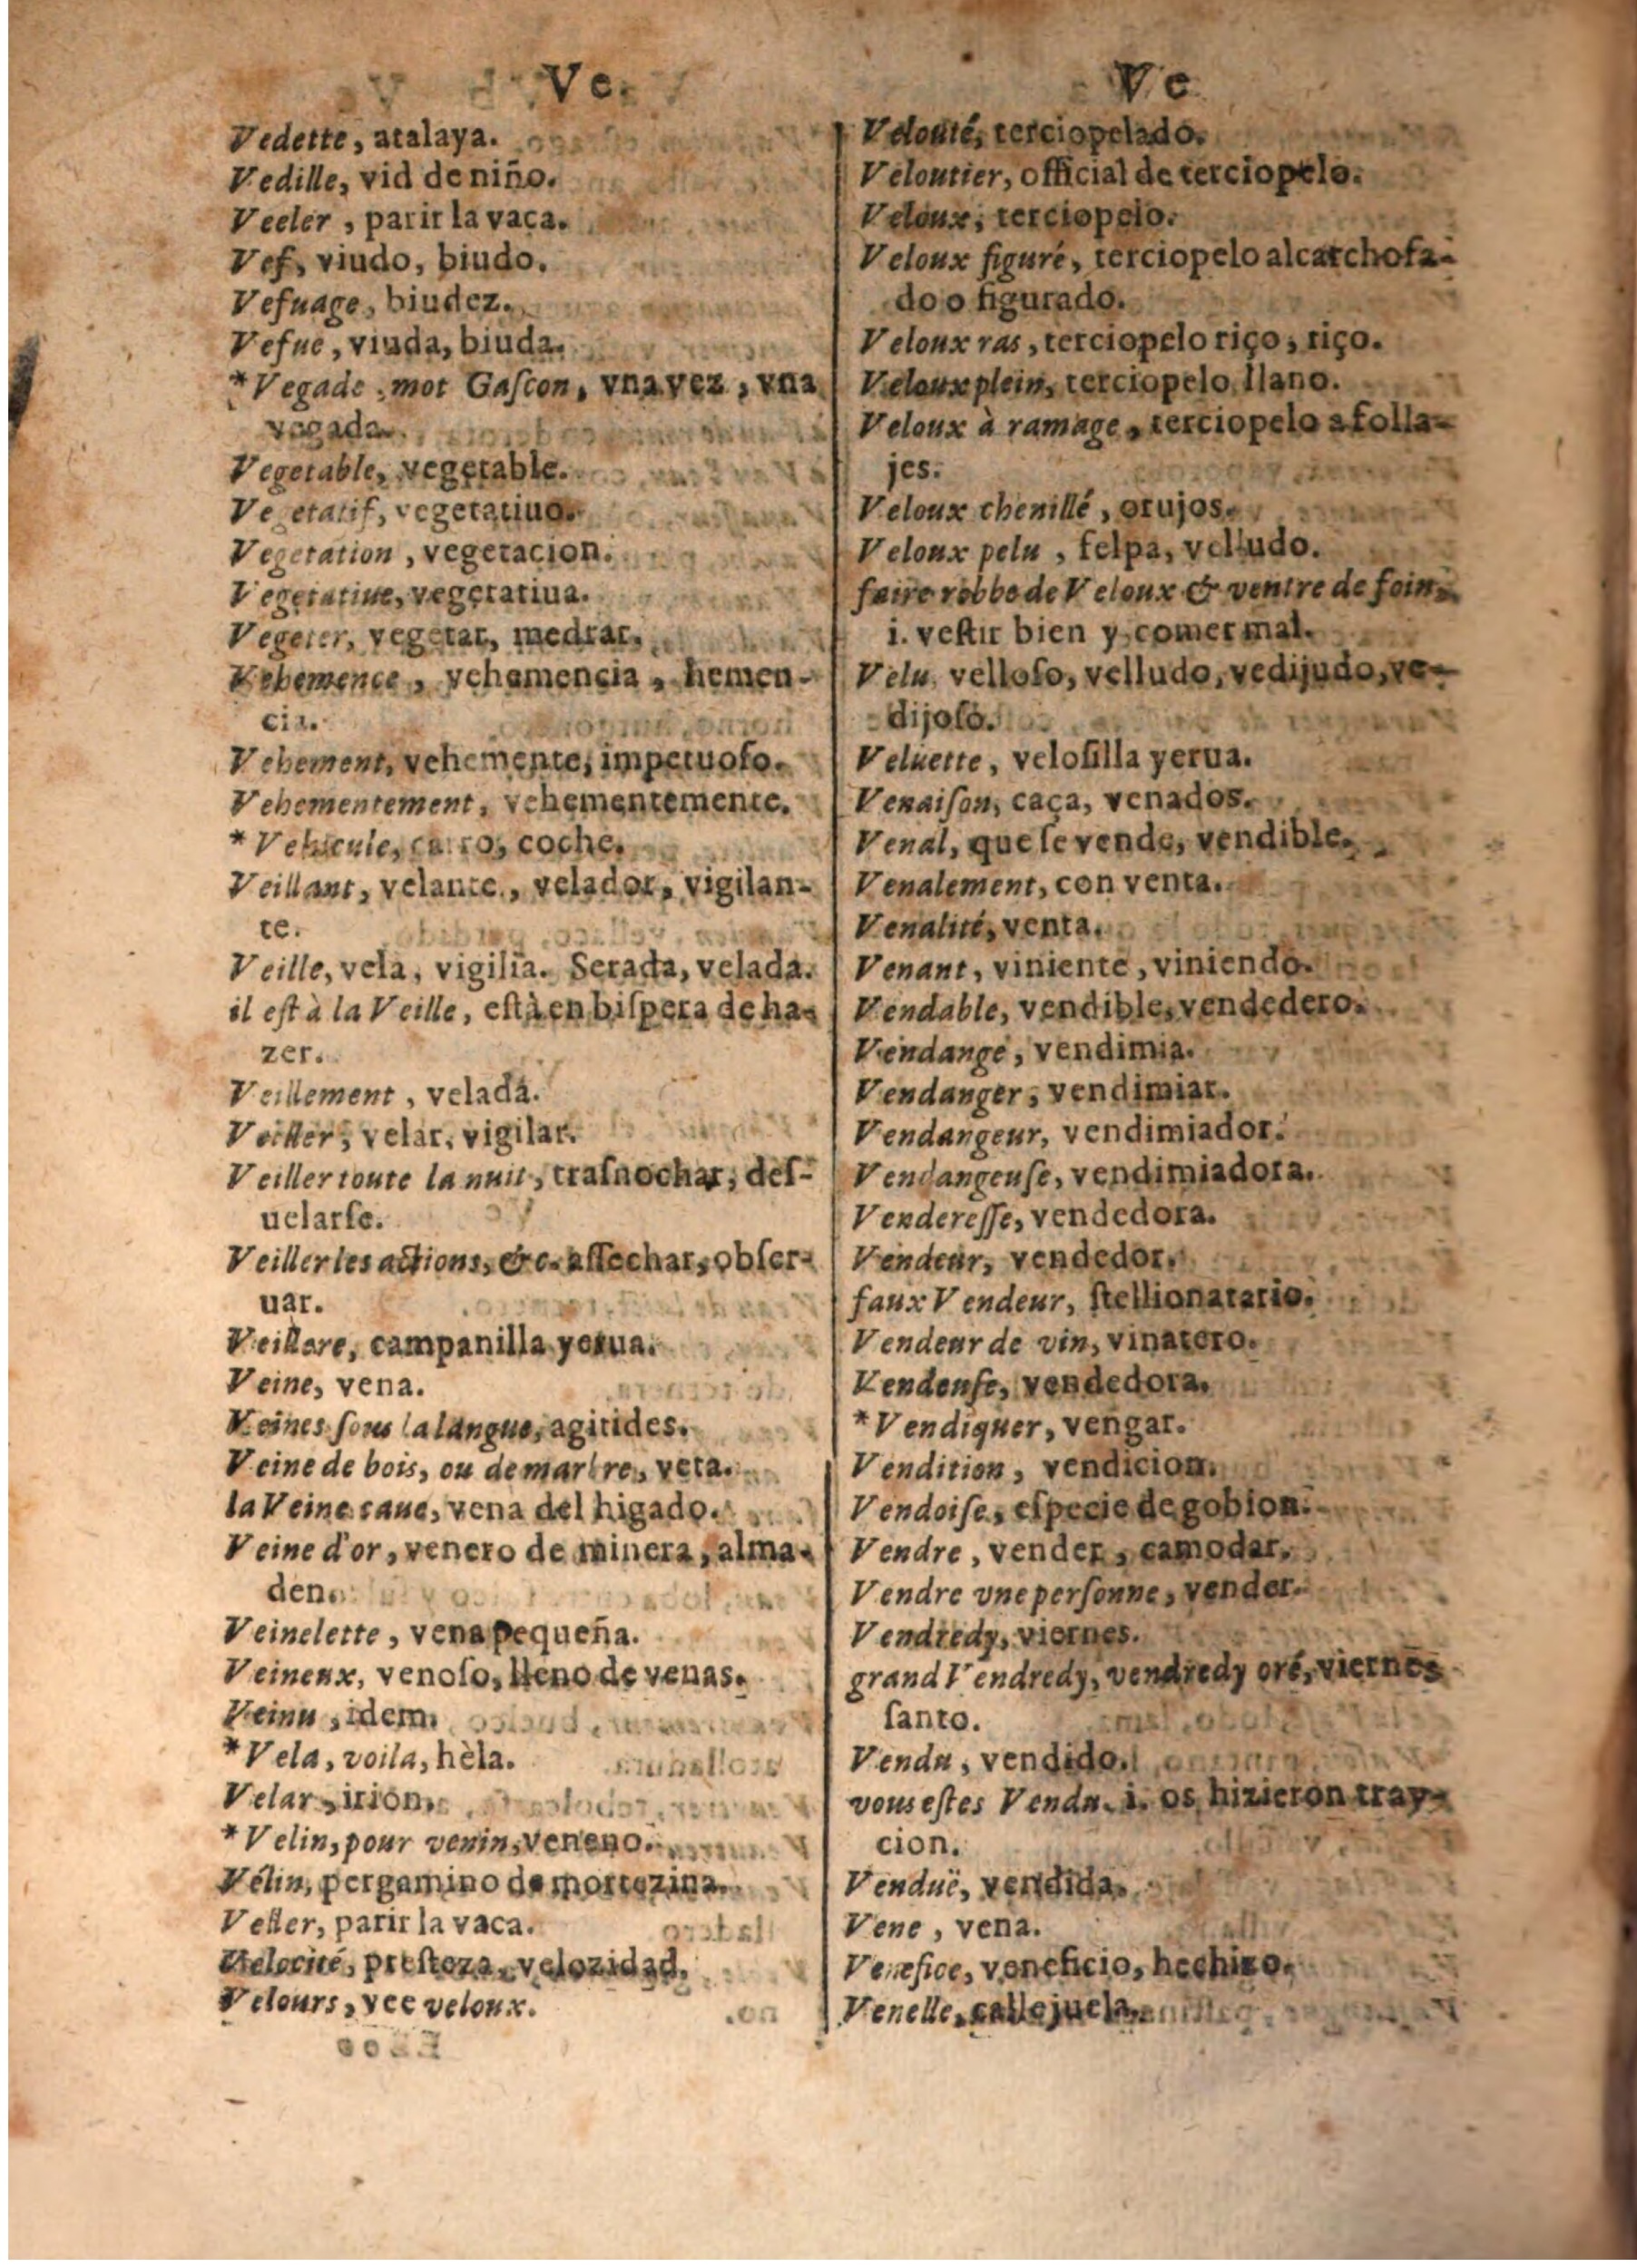 Ve.
Vedette, atalaya.
Vedille, vid de niño.
Veeler, parir la vaca.
Vef, viudo, biudo.
Vefuage, biudez.
Vefue, viuda, biuda.
*Vegade, mot Gaſcon, vna vez, vna
vegada.
Vegetable, vegetable.
Vegetatif, vegetatiuo.
Vegetation, vegetacion.
Vegetatiue, vegetatiua.
Vegeter, vegetar, medrar.
Vehemence, vehemencia, hemen-
cia.
Vehement, vehemente, impetuoſo.
Vehementement, vehementemente.
*Vehicule, carro, coche.
Veillant, velante, velador, vigilan-
te.
Veille, vela, vigilia. Serada, velada.
il eſt à la Veille, eſtà en biſpera de ha-
zer.
Veillement, velada.
Veiller, velar, vigilar.
Veiller toute la nuit, traſnochar, deſ-
uelarſe.
Veiller les actions, &c. aſſechar, obſer-
uar.
Veillere, campanilla yerua.
Veine, vena.
Veines ſous la langue, agitides.
Veine de bois, ou de marbre, veta.
la Veine caue, vena del higado.
Veine d'or, venero de minera, alma-
den.
Veinelette, vena pequeña.
Veineux, venoſo, lleno de venas.
Veinu, idem.
*Vela, voila, hèla.
Velar, irion.
*Velin, pour venin, veneno.
Vélin, pergamino de mortezina.
Veller, parir la vaca.
Velocité, preſteza, velozidad.
Velours, vee veloux.
Ve
Velouté, terciopelado.
Veloutier, official de terciopelo.
Veloux, terciopelo.
Veloux figuré, terciopelo alcatchofa-
do o figurado.
Veloux ras, terciopelo riço, riço.
Veloux plein, terciopelo llano.
Veloux à ramage, terciopelo a folla-
jes.
Veloux chenillé, orujos.
Veloux pelu, felpa, velludo.
faire robbe de Veloux & ventre de foin,
i. veſtir bien y comer mal.
Velu, velloſo, velludo, vedijudo, ve-
dijoſo.
Veluette, veloſilla yerua.
Venaiſon, caça, venados.
Venal, que ſe vende, vendible.
Venalement, con venta.
Venalité, venta.
Venant, viniente, viniendo.
Vendable, vendible, vendedero.
Vendange, vendimia.
Vendanger, vendimiar.
Vendangeur, vendimiador.
Vendangeuſe, vendimiadora.
Vendereſſe, vendedora.
Vendeur, vendedor.
faux Vendeur, ſtellionatario.
Vendeur de vin, vinatero.
Vendeuſe, vendedora.
*Vendiquer, vengar.
Vendition, vendicion.
Vendoiſe, eſpecie de gobion.
Vendre, vender, camodar.
Vendre vne perſonne, vender.
Vendredy, viernes.
grand Vendredy, vendredy oré, viernes
ſanto.
Vendu, vendido.
vous eſtes Vendu. i. os hizieron tray-
cion.
Venduë, vendida.
Vene, vena.
Venefice, veneficio, hechizo.
Venelle, callejuela.